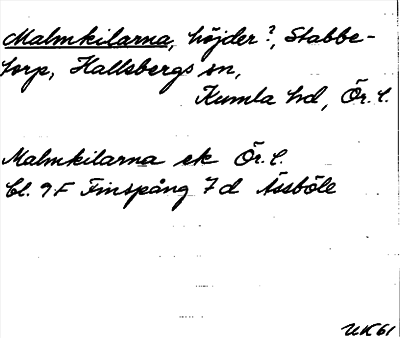 Malmkilarna, höjder?, Stabbe-
torp, Hallsbergs sn,
Kumla hd, Ör. l.
Malmkilarna ek Ör. l.
Bl. 9F Finspång 7d Åssböle
UK61